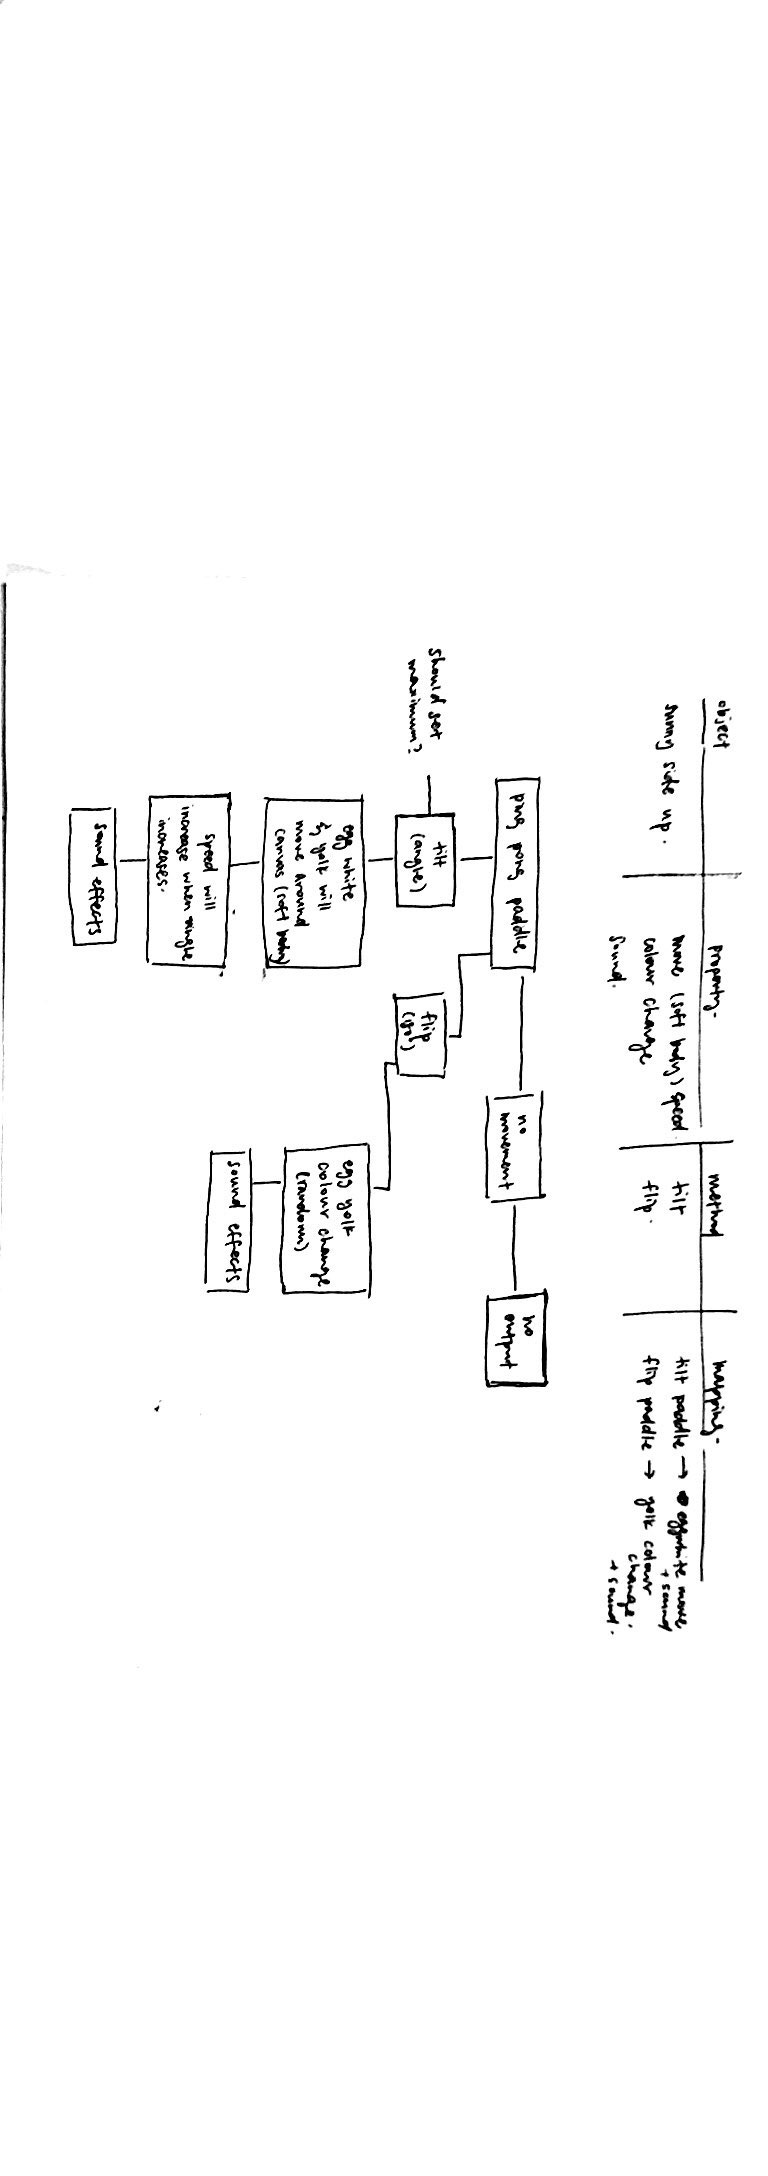 object
property-
method
mapping-
sunny side up.
move (soft body) speed
colour change
sound.
tilt
flip.
tilt paddle → eggwhite move
+ sound
flip paddle → yolk colour
change.
+ sound.
ping pong paddle
no
movement
no
output
should set
maximum?
tilt
(angle)
flip
(180°)
egg white
& yolk will
move around
canvas (soft body)
egg yolk
colour change
(random)
speed will
increase when angle
increases.
sound effects
sound effects